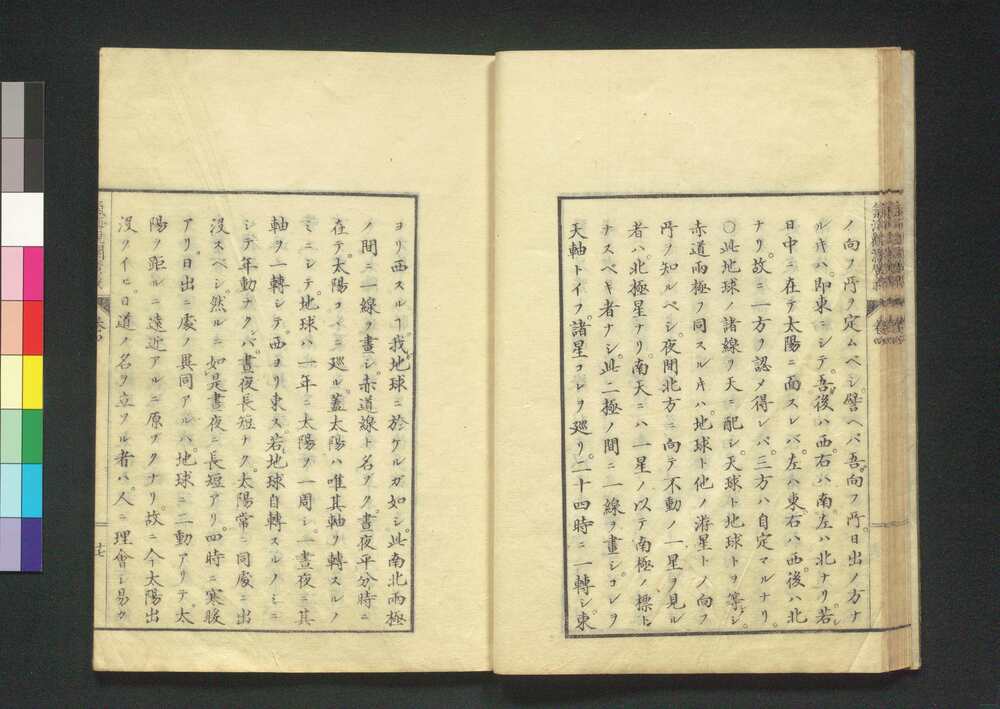 ノ向フ所ヲ定ムベシ。譬ヘバ吾。向フ所。日出ノ方ナ
ルキハ。即東ニシテ。吾後ハ西。右ハ南左ハ北ナリ。若シ
日中ニ在テ太陽ニ面スレバ。左ハ東右ハ西後ハ北
ナリ。故ニ一方ヲ認メ得レバ。三方ハ自定マルナリ。
○此地球ノ諸線ヲ天ニ配シ。天球ト地球トヲ等シ。
赤道両極ヲ同スルキハ。地球ト他ノ游星トノ向フ
所ノ知ルベシ。夜間北方ニ向テ不動ノ一星ヲ見ル
者ハ。北極星ナリ。南天ニハ一星ノ以テ南極ノ標ト
ナスベキ者ナシ。此二極ノ間ニ一線ヲ畫シ。コレヲ
天軸トイフ。諸星コレヲ巡リ。二十四時ニ一轉シ。東
ヨリ西スルヿ。我地球ニ於ケルガ如シ。此南北両極
ノ間ニ一線ヲ畫シ。赤道線ト名ヅク。晝夜平分時ニ
在テ。太陽コヽニ巡ル。蓋太陽ハ唯其軸ヲ轉スルノ
ミニシテ。地球ハ一年ニ太陽ヲ一周シ。一晝夜ニ其
軸ヲ一轉シテ。西ヨリ東ス。若地球自轉スルノミニ
シテ年動ナクンバ。晝夜長短ナク。太陽常ニ同處ニ出
没スベシ。然ルニ如是晝夜ニ長短アリ。四時ニ寒暖
アリ。日出ニ處ノ異同アルハ。地球ニ二動アリテ。太
陽ヲ距ルニ遠近アルニ原ヅクナリ。故ニ今太陽出
没ヲイヒ。日道ノ名ヲ立ツル者ハ。人ニ理會シ易カ
十七